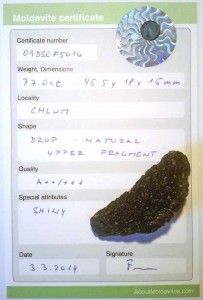 Moldavite certificate
Certificate number
09DSCF5016
Weight, Dimensions
77.0ct 45.5 x 18 x 15mm
Locality
CHLUM
Shape
DROP - NATURAL
UPPER FRAGMENT
Quality
A++/+++
Special attributes
SHINY
Date
Signature
3.3.2014
aboutMoldavites.com